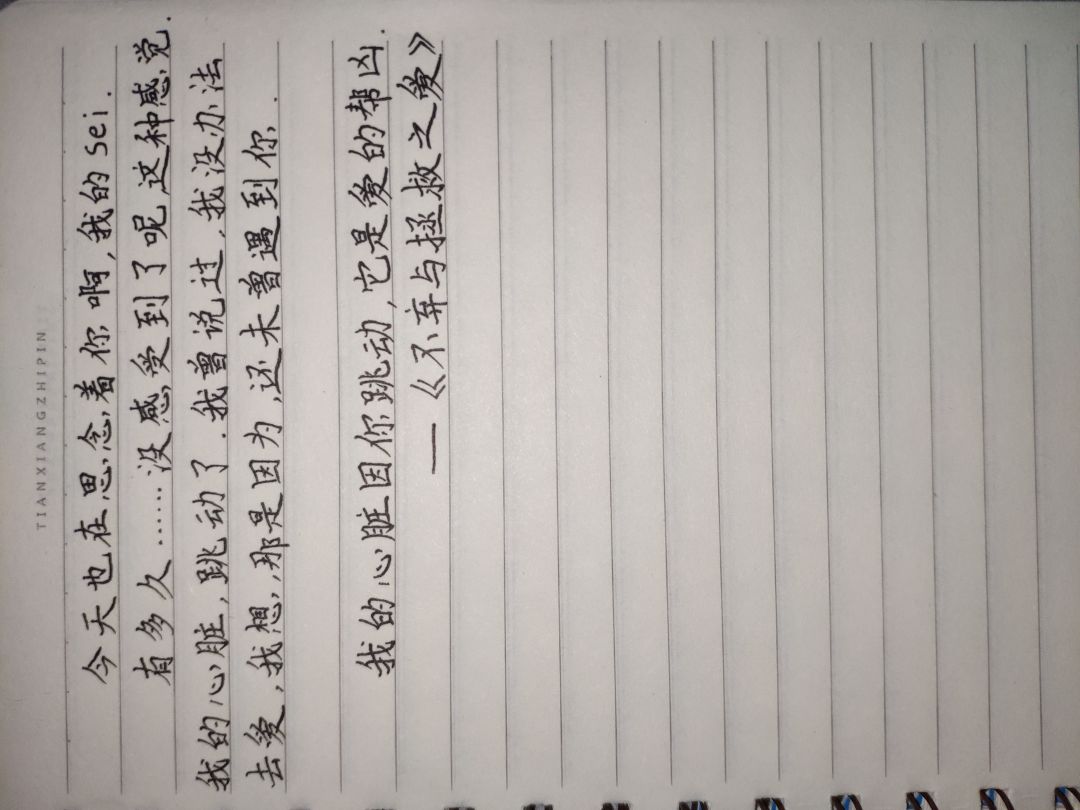 TIANXIANGZHIPIN
今天也在思念着你啊,我的Sei.
有多久……没感受到了呢,这种感觉.
我的心脏,跳动了.我曾说过,我没办法
去爱,我想,那是因为,还未曾遇到你.
我的心脏因你跳动,它是爱的帮凶.
—《不弃与拯救之爱》